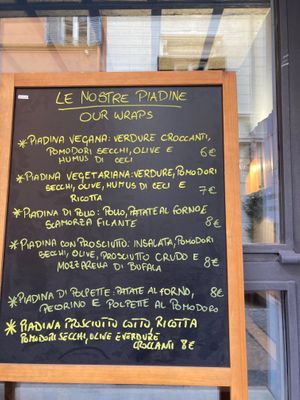 LE NOSTRE PIADINE
OUR WRAPS
* PIADINA VEGANA: VERDURE CROCCANTI,
POMODORI SECCHI, OLIVE E
HUMUS DI CECI 6€
* PIADINA VEGETARIANA: VERDURE, POMODORI
SECCHI, OLIVE, HUMUS DI CECI E
RICOTTA 7€
* PIADINA DI POLLO: POLLO, PATATE AL FORNO E
SCAMORZA FILANTE 8€
* PIADINA CON PROSCIUTTO: INSALATA, POMODORI
SECCHI, OLIVE, PROSCIUTTO CRUDO E
MOZZARELLA DI BUFALA 8€
* PIADINA DI POLPETTE: PATATE AL FORNO, 8€
PECORINO E POLPETTE AL POMODORO
* PIADINA PROSCIUTTO COTTO, RICOTTA
POMODORI SECCHI, OLIVE E VERDURE
CROCCANTI 8€